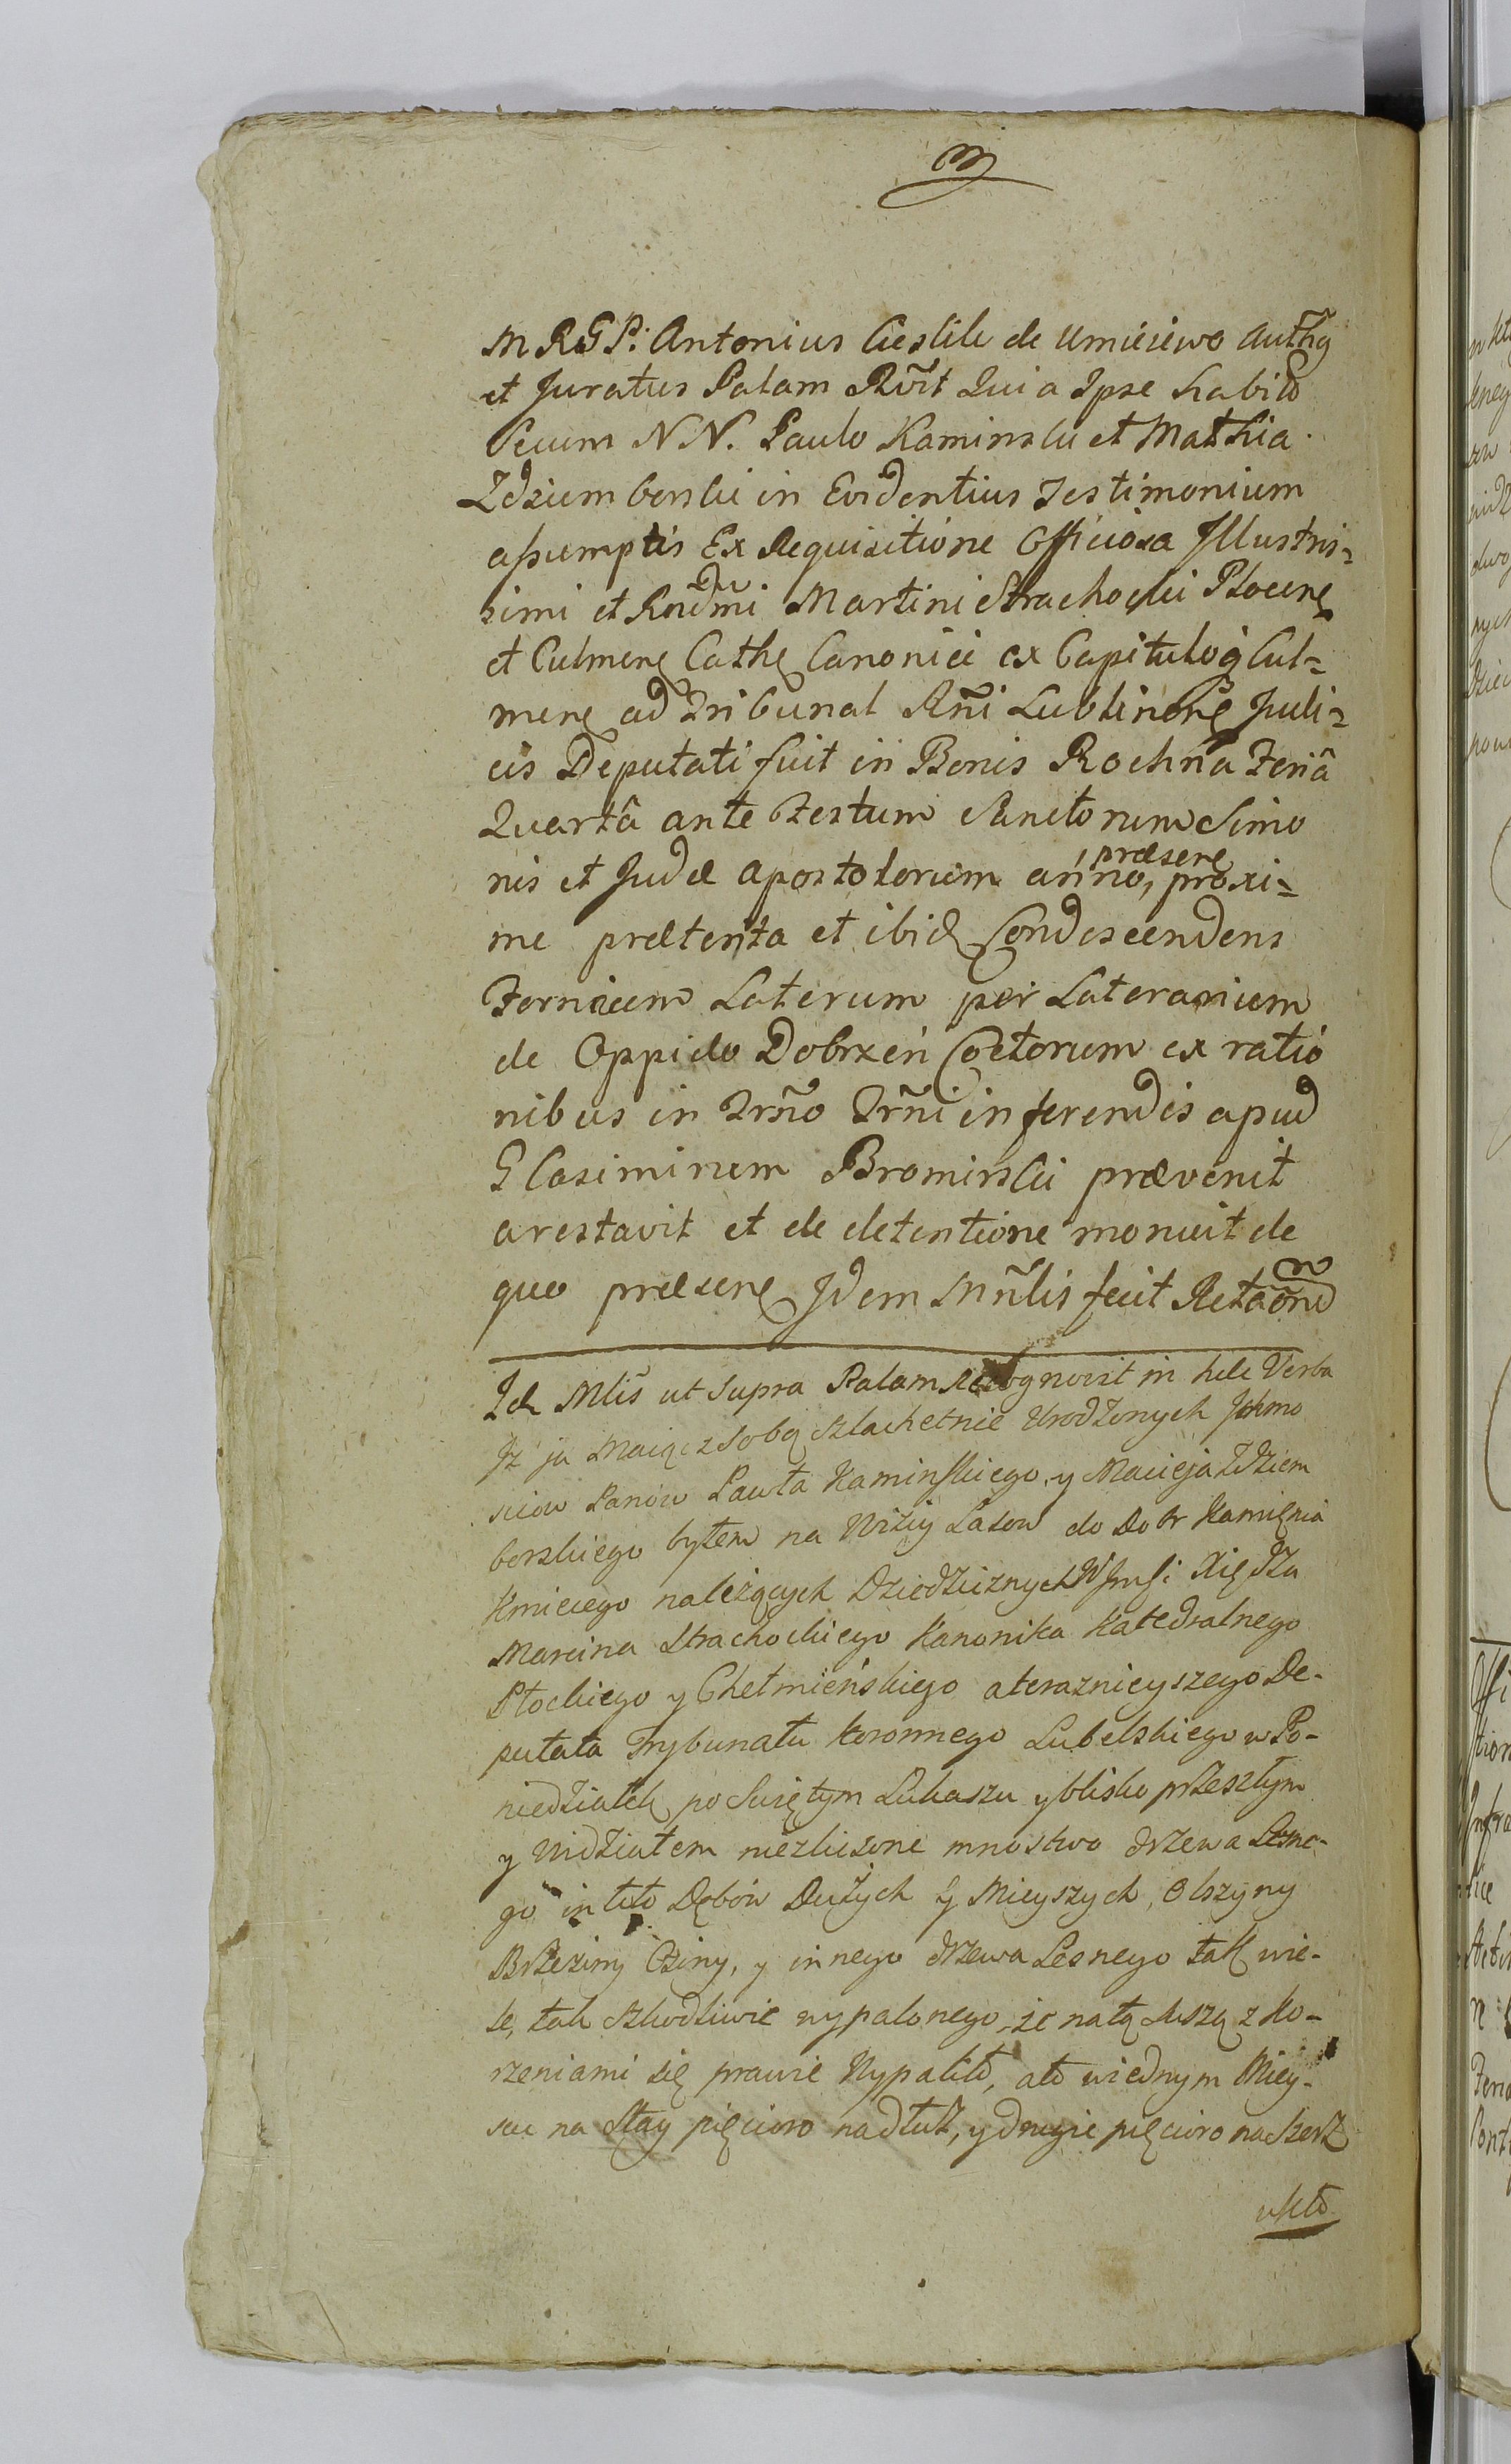 M R G P. Antonius Cieslik de Umieniewo Auth
et Juratus Palam Rvit Quia Ipse habito
Secum N N. Paulo Kaminski et Mathia
Zdziemborski in Evidentius Testimonium
assumptis Ex Requisitione Officiosa Illustris=
simi et Rndmi Martini Strachocki Plocen
et Culmen Cathe Canonici ex Capitulo Cul=
mene ad Tribunal Rni Lublinense Judi=
cis Deputati fuit in Bonis Rochna Feriâ
Quartâ ante Festum Sanctorum Simo
nis et Judæ Apostolorum anno, præsen proxi=
me præterita et ibid Condescendens
Fornicem Laterum per Laterarium
de Oppido Dobrzen Coctorum ex ratio
nibus in Trno Trni inferendis apud
G Casimirum Bromirski prævenit
arestavit et de detentione monuit de
quo præsen Idem Mnlis fecit Retaonem
Id Mlis ut Supra Palam Recognovit in hæc Verba
Jż ja Maiąc z Sobą Szlachetnie Urodzonych Jchmo
sciow Panów Pawła Kaminskiego, y Macieja Zdziem
borskiego byłem na Wizij Lasow do Dobr
Kmiecego należących Dziedzicznych Xiędza
Marcina Strachockiego Kanonika Katedralnego
Płockiego y Chełmieńskiego a teraznieyszego De-
putata Trybunału Koronnego Lubelskiego w Po-
niedziałek po Swiętym Łukaszu y blisko przeszłym
y Widziałem niezliczone mnostwo drzewa Lesne-
go in toto Dębów Dużych y Mieyszych, Olszyny
Brzeziny Osiny, y innego drzewa Lesnego tak wie-
le, tak szkodliwie wypalonego, że na tą suszą z ko-
rzeniami się prawie Wypaliło, a to wiednym Miey-
scu na Stay pięcioro nadłuż, y drugie pięcioro na Szerz